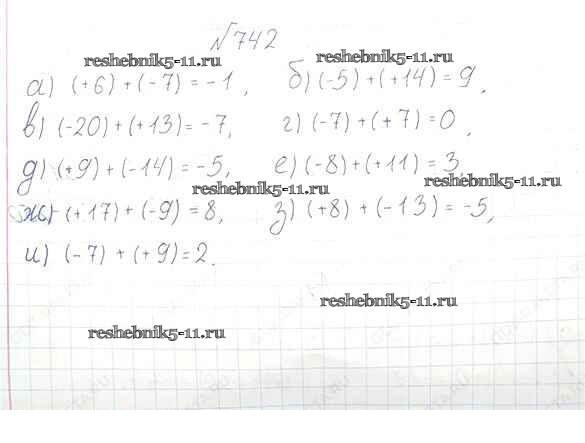 №742
reshebnik5-11.ru reshebnik5-11.ru
а) (+6) + (-7) = -1, б) (-5) + (+14) = 9,
в) (-20) + (+13) = -7, г) (-7) + (+7) = 0,
д) (+9) + (-14) = -5, е) (-8) + (+11) = 3
reshebnik5-11.ru reshebnik5-11.ru
ж) (+17) + (-9) = 8, з) (+8) + (-13) = -5,
и) (-7) + (+9) = 2.
reshebnik5-11.ru
reshebnik5-11.ru